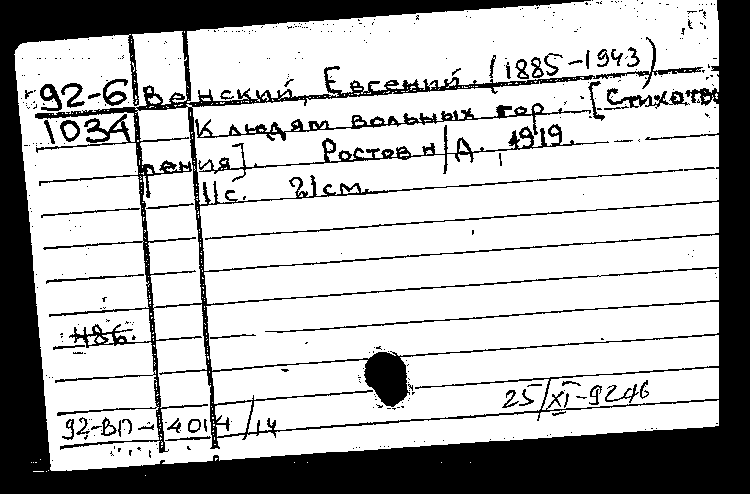 92-6 Венский, Евгений. (1885-1943)
1034 К людям вольных гор. [Стихотво
рения]. Ростов н/Д. 1919.
11с. 21см.
48б.
92-ВП-4014/14
25/XI-92